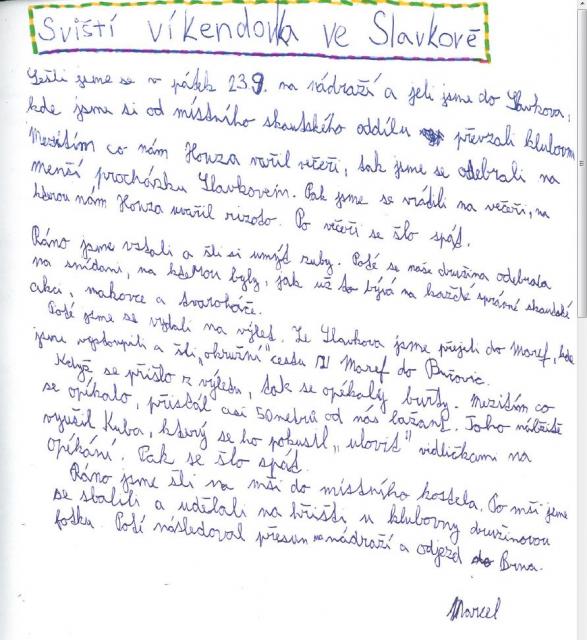 Sviští víkendovka ve Slavkově
Sešli jsme se v pátek 23.9. na nádraží a jeli jsme do Slavkova,
kde jsme si od místního skautského oddílu převzali klubovn
Mezitím co nám Houza vařil večeři, tak jsme se odebrali na
menší procházku Slavkovem. Pak jsme se vrátili na večeři, na
kterou nám Houza uvařil rizoto. Po večeři se šlo spát.
Ráno jsme vstali a šli si umýt zuby. Poté se naše družina odebrala
na snídani, na kterou byly, jak už to bývá na každé správné skautské
akci, makovce a tvaroháče.
Poté jsme se vydali na výlet. Ze Slavkova jsme přejeli do Maref, kde
jsme vystoupili a šli "okružní" cestu z Maref do Bučovic.
Když se přišlo z výletu, tak se opékaly burty. Mezitím co
se opékalo, přistál asi 50 metrů od nás bažant. Toho náležitě
využil Kuba, který se ho pokusil "ulovit" vidličkami na
opékání. Pak se šlo spát.
Ráno jsme šli na mši do místního kostela. Po mši jsme
se sbalili a udělali na hřišti u klubovny družinovou
fotku. Poté následoval přesun na nádraží a odjezd do Brna.
Marcel